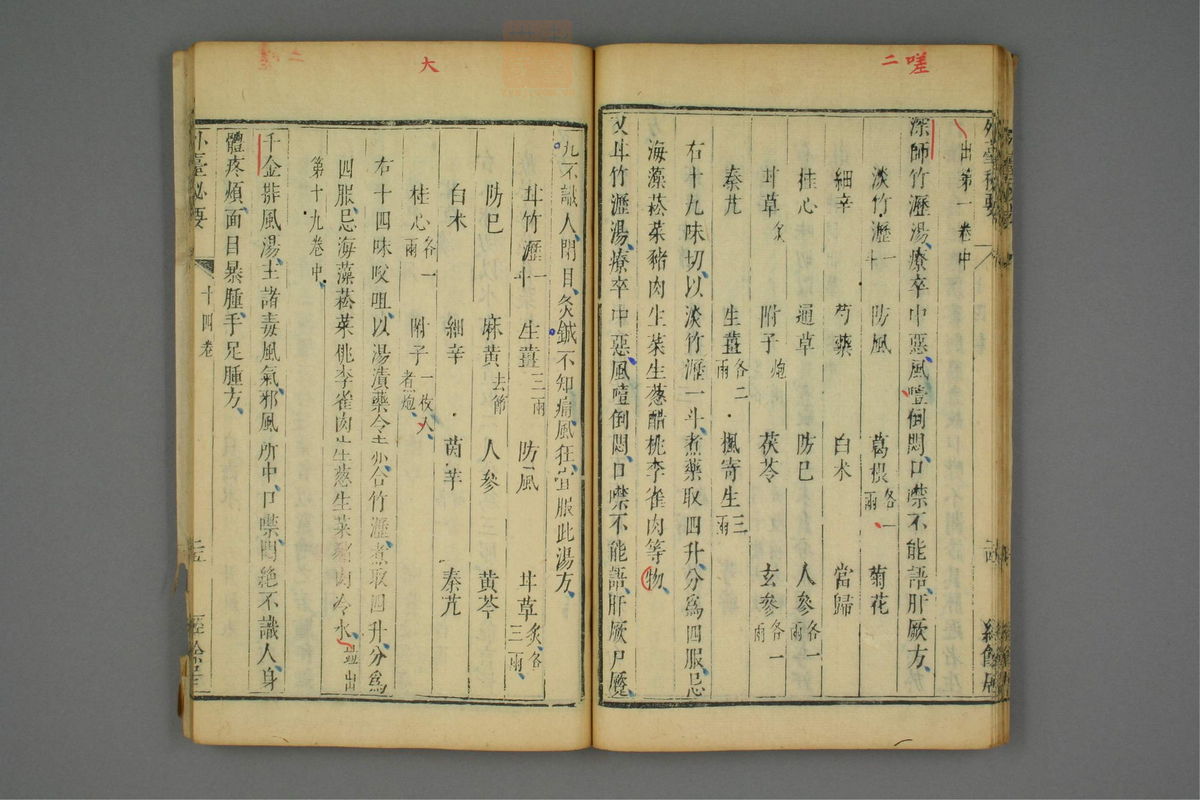 二嗟
出第一卷中
深師竹瀝湯療卒中惡風噎倒悶口噤不能語肝厥方
淡竹瀝一斗 防風 葛根各一兩 菊花
細辛 芍藥 白朮 當歸
桂心 通草 防巳 人參各一兩
甘草炙 附子炮 茯苓 玄參各一兩
秦艽 生薑各二兩 楓寄生三兩
右十九味切以淡竹瀝一斗煮藥取四升分爲四服忌
海藻菘菜豬肉生菜生葱醋桃李雀肉等物
又甘竹瀝湯療卒中惡風噎倒悶口噤不能語肝厥尸魘
大
九不識人閉目灸鍼不知痛風狂宜服此湯方
甘竹瀝一斗 生薑三兩 防風 甘草炙各三兩
防巳 麻黄去節 人參 黄芩
白朮 細辛 茵芋 秦艽
桂心各一兩 附子一枚大者炮
右十四味㕮咀以湯漬藥令 合竹瀝煮取四升分爲
四服忌海藻菘菜桃李雀肉生葱生菜豬肉冷水並出
第十九卷中
千金排風湯主諸毒風氣邪風所中口噤悶絶不識人身
體疼煩面目暴腫手足腫方
外臺秘要 十四卷